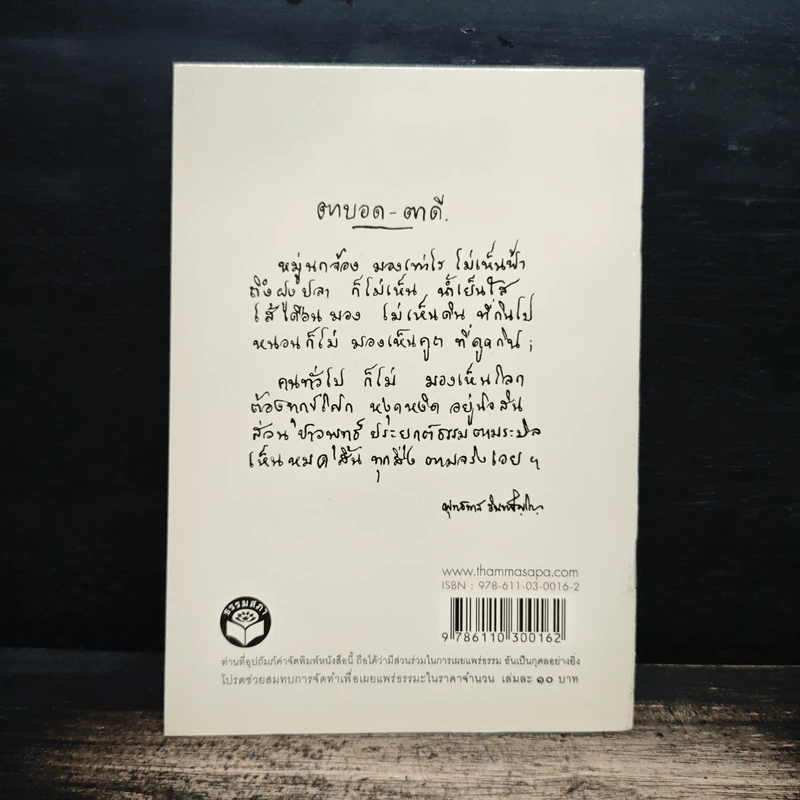 ตาบอด - ตาดี.
หมู่นกจ้อง มองเท่าไร ไม่เห็นฟ้า
ถึงฝูงปลา ก็ไม่เห็น น้ำเย็นใส
ไส้เดือนมอง ไม่เห็นดิน ที่กินไป
หนอนก็ไม่ มองเห็นคูต ที่ดูดกิน ;
คนทั่วไป ก็ไม่ มองเห็นโลก
ต้องทุกข์โศก หงุดหงิด อยู่นิจสิน
ส่วนชาวพุทธ ประยุกต์ธรรม ตามระบิล
เห็นหมดสิ้น ทุกสิ่ง ตามจริงเอย ฯ
พุทธทาส อินทปัญโญ
www.thammasapa.com
ISBN : 978-611-03-0016-2
ธรรมสภา
9 786110 300162
ท่านที่อุปถัมภ์ค่าจัดพิมพ์หนังสือนี้ ถือได้ว่ามีส่วนร่วมในการเผยแพร่ธรรม อันเป็นกุศลอย่างยิ่ง
โปรดช่วยสมทบการจัดทำเพื่อเผยแพร่ธรรมะในราคาจำนวน เล่มละ ๑๐ บาท